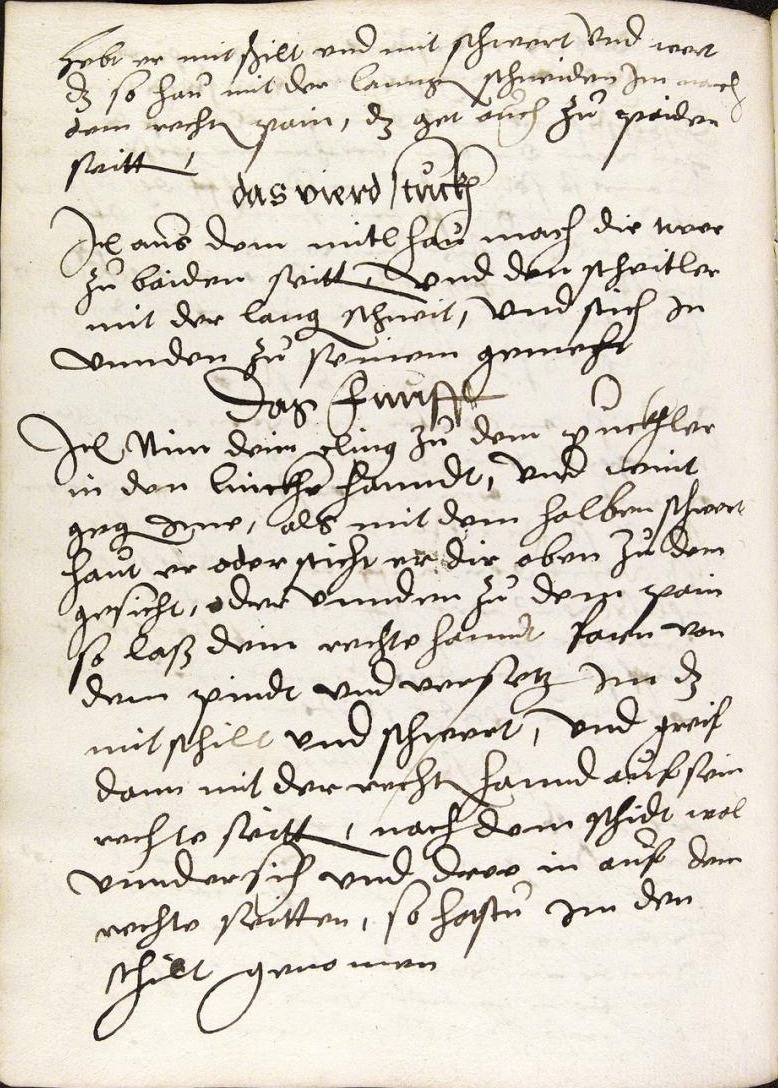 hebt er mit schilt und mit schwert und wert
dz so hau mit der lanngen schneiden Im nach
dem rechten pain, dz get auch zu paiden
seitt
das vierd stuckh
Itl aus dem mitlhau mach die twer
zu baiden seitt, und den scheitler
mit der lang schneit, und stich In
unnden zu seinem gemecht
Das funfft
Itl Nim dein cling zu dem puckhler
in den linckhe hanndt, und wint
geg Ime, als mit dem halben schwert
haut er oder sticht er dir oben zu dem
gesicht, oder unnden zu dem pain
so laß dein rechte hannt faren von
dem pindt und versetz Im dz
mit schilt und schwert, und greif
dann mit der recht hannd auf sein
rechte seitt, nach dem schidt wol
unndersich und dree in auf dem
rechte seitten, so hastu Im den
schilt genomen